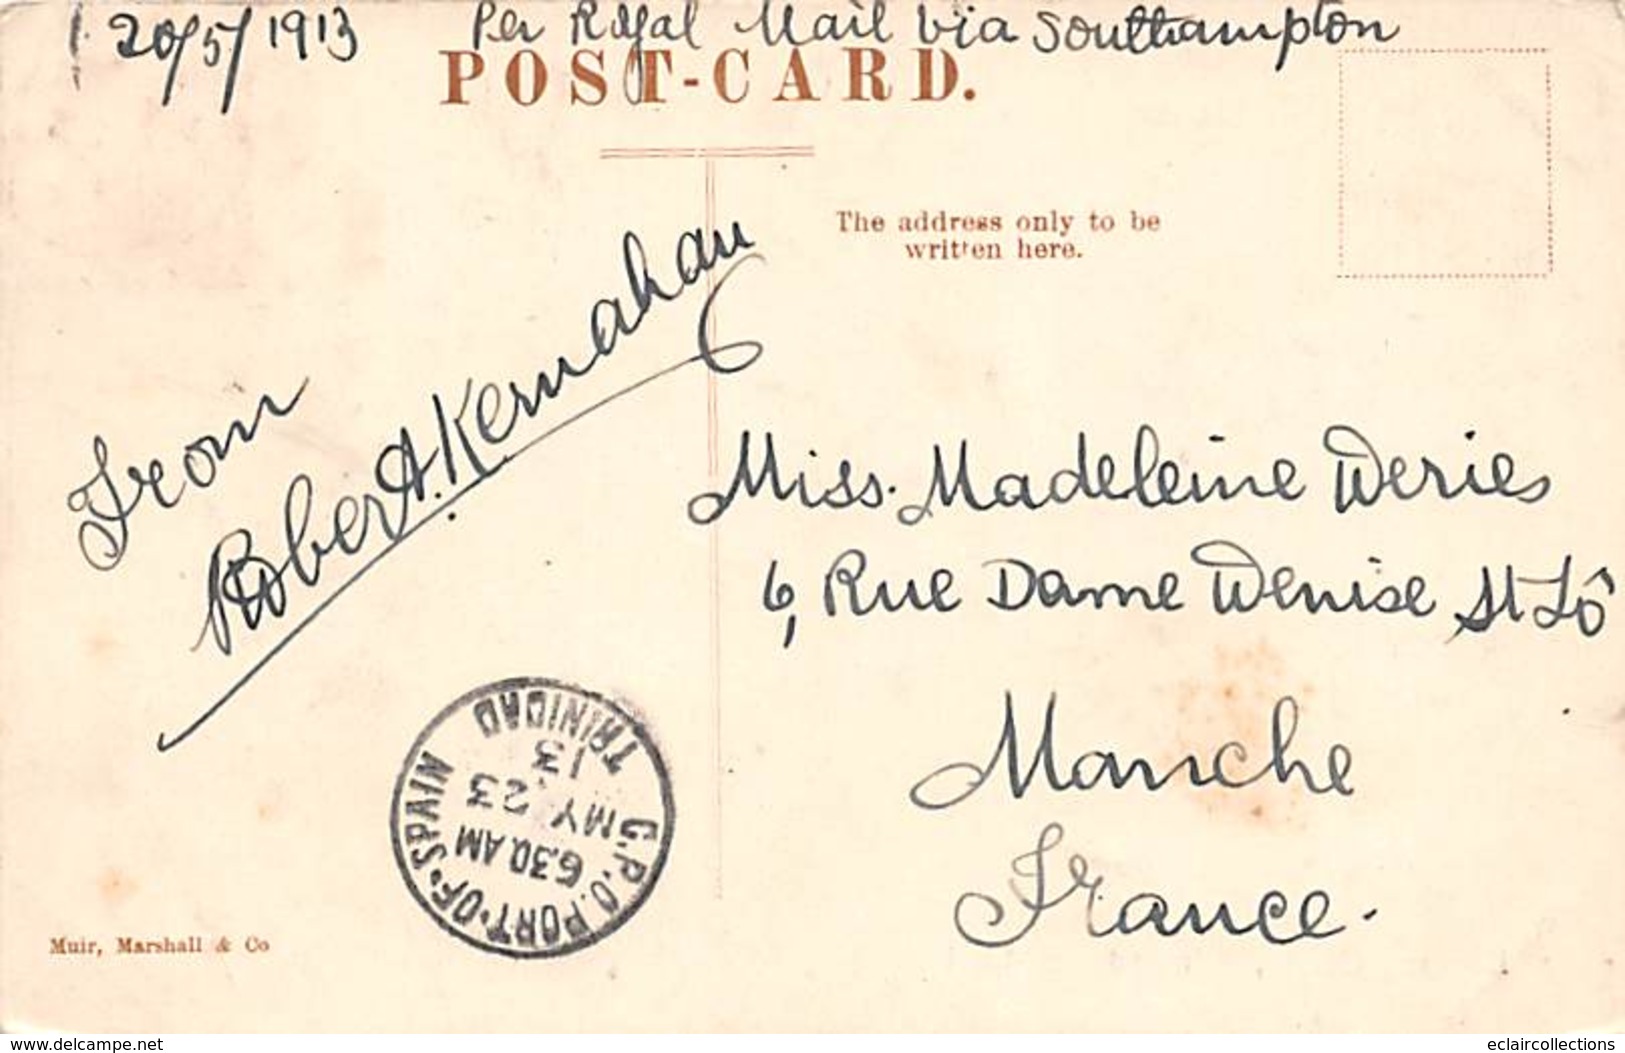 20/5/1913 Per Royal Mail via Southampton
POST-CARD.
The address only to be
written here.
From
Robert A. Kernahan
Miss. Madeleine Deries
6, Rue Dame Denise St Lô
Manche
France.
G.P.O. PORT·OF·SPAIN
6.30 AM
MY 23
13
TRINIDAD
Muir, Marshall & Co
delcampe.net
eclaircollections